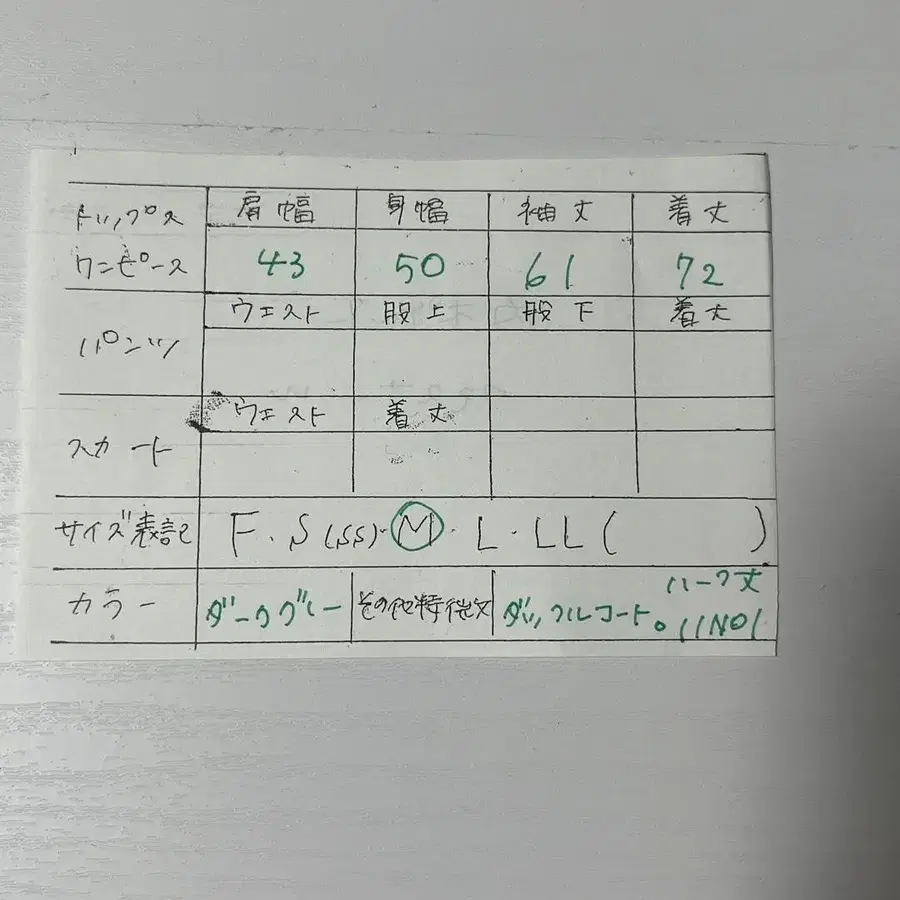 トップス 肩幅 身幅 袖丈 着丈
ワンピース 43 50 61 72
パンツ ウエスト 股上 股下 着丈
スカート ウエスト 着丈
サイズ表記 F・S(SS)・M・L・LL( )
カラー ダークグレー その他特徴文 ダッフルコート。ハーフ丈